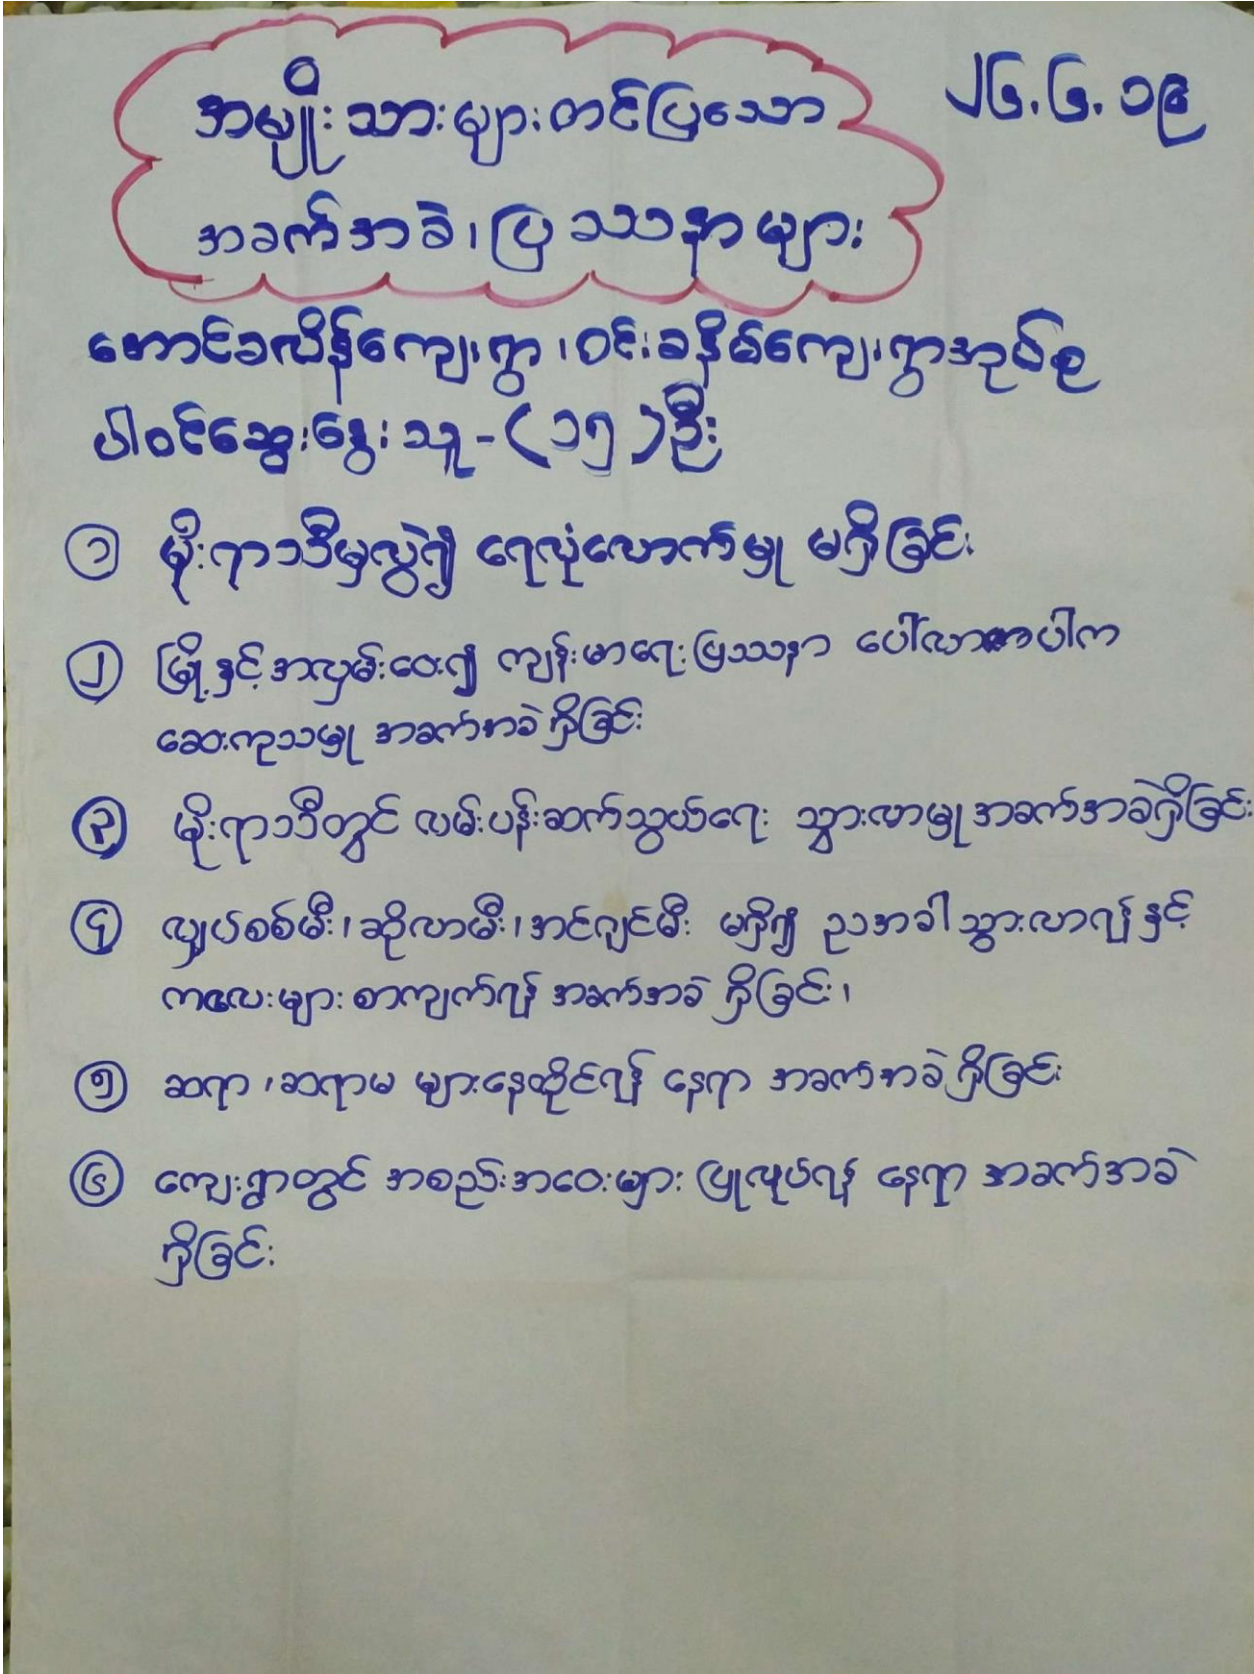 အမျိုးသားများတင်ပြသော
၂၆.၆.၁၉
အခက်အခဲ၊ ပြဿနာများ
ဟောင်ခလိန်ကျေးရွာ၊ ဝင်းခနိမ်ကျေးရွာအုပ်စု
ပါဝင်ဆွေးနွေးသူ-(၁၅)ဦး
၁ မိုးရာသီမှလွဲ၍ ရေလုံလောက်မှု မရှိခြင်း
၂ မြို့နှင့်အလှမ်းဝေး၍ ကျန်းမာရေးပြဿနာ ပေါ်လာပါက
ဆေးကုသမှု အခက်အခဲရှိခြင်း
၃ မိုးရာသီတွင် လမ်းပန်းဆက်သွယ်ရေး သွားလာမှုအခက်အခဲရှိခြင်း
၄ လျှပ်စစ်မီး၊ ဆိုလာမီး၊ အင်ဂျင်မီး မရှိ၍ ညအခါသွားလာရန်နှင့်
ကလေးများစာကျက်ရန် အခက်အခဲ ရှိခြင်း၊
၅ ဆရာ၊ ဆရာမ များနေထိုင်ရန် နေရာ အခက်အခဲရှိခြင်း
၆ ကျေးရွာတွင် အစည်းအဝေးများ ပြုလုပ်ရန် နေရာ အခက်အခဲ
ရှိခြင်း